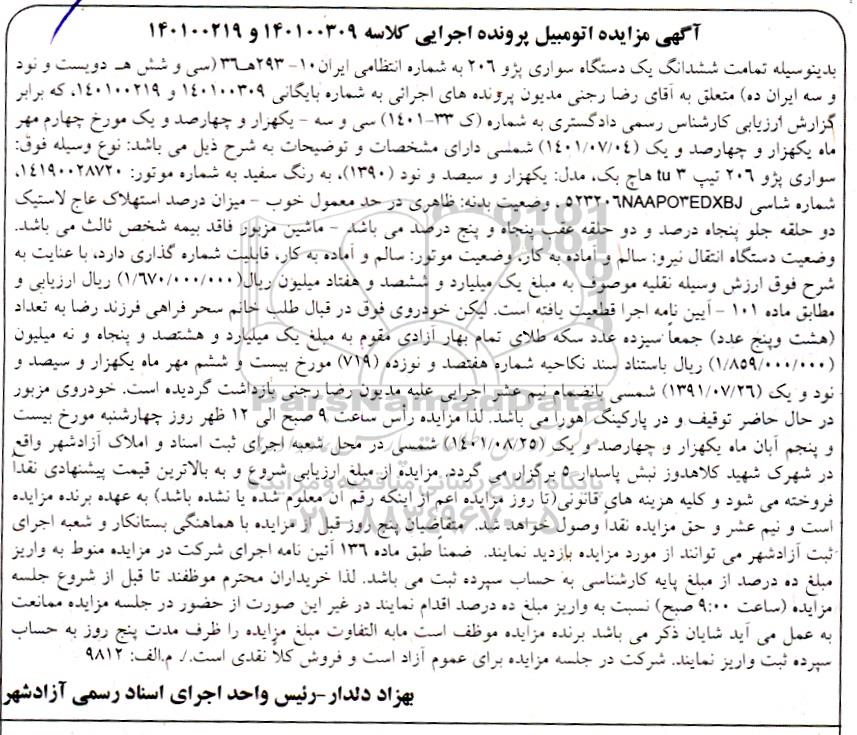 آگهی مزایده اتومبیل پرونده اجرایی کلاسه ۱۴۰۱۰۰۳۰۹ و ۱۴۰۱۰۰۲۱۹
بدینوسیله تمامت ششدانگ یک دستگاه سواری پژو ۲۰۶ به شماره انتظامی ایران۱۰- ۲۹۳هـ۳۶ (سی و شش هـ دویست و نود
و سه ایران ده) متعلق به آقای رضا رجنی مدیون پرونده های اجرائی به شماره بایگانی ۱۴۰۱۰۰۳۰۹ و ۱۴۰۱۰۰۲۱۹، که برابر
گزارش ارزیابی کارشناس رسمی دادگستری به شماره (ک ۳۳-۱۴۰۱) سی و سه - یکهزار و چهارصد و یک مورخ چهارم مهر
ماه یکهزار و چهارصد و یک (۱۴۰۱/۰۷/۰۴) شمسی دارای مشخصات و توضیحات به شرح ذیل می باشد: نوع وسیله فوق:
سواری پژو ۲۰۶ تیپ ۳ tu هاچ بک، مدل: یکهزار و سیصد و نود (۱۳۹۰)، به رنگ سفید به شماره موتور: ۱۴۱۹۰۰۲۸۷۲۰،
شماره شاسی NAAPO۳EDXBJ۵۲۳۲۰۶ ، وضعیت بدنه: ظاهری در حد معمول خوب - میزان درصد استهلاک عاج لاستیک
دو حلقه جلو پنجاه درصد و دو حلقه عقب پنجاه و پنج درصد می باشد - ماشین مزبور فاقد بیمه شخص ثالث می باشد.
وضعیت دستگاه انتقال نیرو: سالم و آماده به کار، وضعیت موتور: سالم و آماده به کار، قابلیت شماره گذاری دارد، با عنایت به
شرح فوق ارزش وسیله نقلیه موصوف به مبلغ یک میلیارد و ششصد و هفتاد میلیون ریال(۱/۶۷۰/۰۰۰/۰۰۰) ریال ارزیابی و
مطابق ماده ۱۰۱ - آیین نامه اجرا قطعیت یافته است. لیکن خودروی فوق در قبال طلب خانم سحر فراهی فرزند رضا به تعداد
(هشت وپنج عدد) جمعاً سیزده عدد سکه طلای تمام بهار آزادی مقوم به مبلغ یک میلیارد و هشتصد و پنجاه و نه میلیون
(۱/۸۵۹/۰۰۰/۰۰۰) ریال باستناد سند نکاحیه شماره هفتصد و نوزده (۷۱۹) مورخ بیست و ششم مهر ماه یکهزار و سیصد و
نود و یک (۱۳۹۱/۰۷/۲۶) شمسی بانضمام نیم عشر اجرایی علیه مدیون رضا رجنی بازداشت گردیده است. خودروی مزبور
در حال حاضر توقیف و در پارکینگ اهورا می باشد. لذا مزایده رأس ساعت ۹ صبح الی ۱۲ ظهر روز چهارشنبه مورخ بیست
و پنجم آبان ماه یکهزار و چهارصد و یک (۱۴۰۱/۰۸/۲۵) شمسی در محل شعبه اجرای ثبت اسناد و املاک آزادشهر واقع
در شهرک شهید کلاهدوز نبش پاسدار ۵ برگزار می گردد. مزایده از مبلغ ارزیابی شروع و به بالاترین قیمت پیشنهادی نقداً
فروخته می شود و کلیه هزینه های قانونی(تا روز مزایده اعم از اینکه رقم آن معلوم شده یا نشده باشد) به عهده برنده مزایده
است و نیم عشر و حق مزایده نقداً وصول خواهد شد. متقاضیان پنج روز قبل از مزایده با هماهنگی بستانکار و شعبه اجرای
ثبت آزادشهر می توانند از مورد مزایده بازدید نمایند. ضمناً طبق ماده ۱۳۶ آئین نامه اجرای شرکت در مزایده منوط به واریز
مبلغ ده درصد از مبلغ پایه کارشناسی به حساب سپرده ثبت می باشد. لذا خریداران محترم موظفند تا قبل از شروع جلسه
مزایده (ساعت ۹:۰۰ صبح) نسبت به واریز مبلغ ده درصد اقدام نمایند در غیر این صورت از حضور در جلسه مزایده ممانعت
به عمل می آید شایان ذکر می باشد برنده مزایده موظف است مابه التفاوت مبلغ مزایده را ظرف مدت پنج روز به حساب
سپرده ثبت واریز نمایند. شرکت در جلسه مزایده برای عموم آزاد است و فروش کلاً نقدی است./. م.الف: ۹۸۱۲
بهزاد دلدار-رئیس واحد اجرای اسناد رسمی آزادشهر
ParsNamadData
پایگاه اطلاع رسانی مناقصه و مزایده
۰۲۱-۸۸۳۴۹۶۷۰-۵